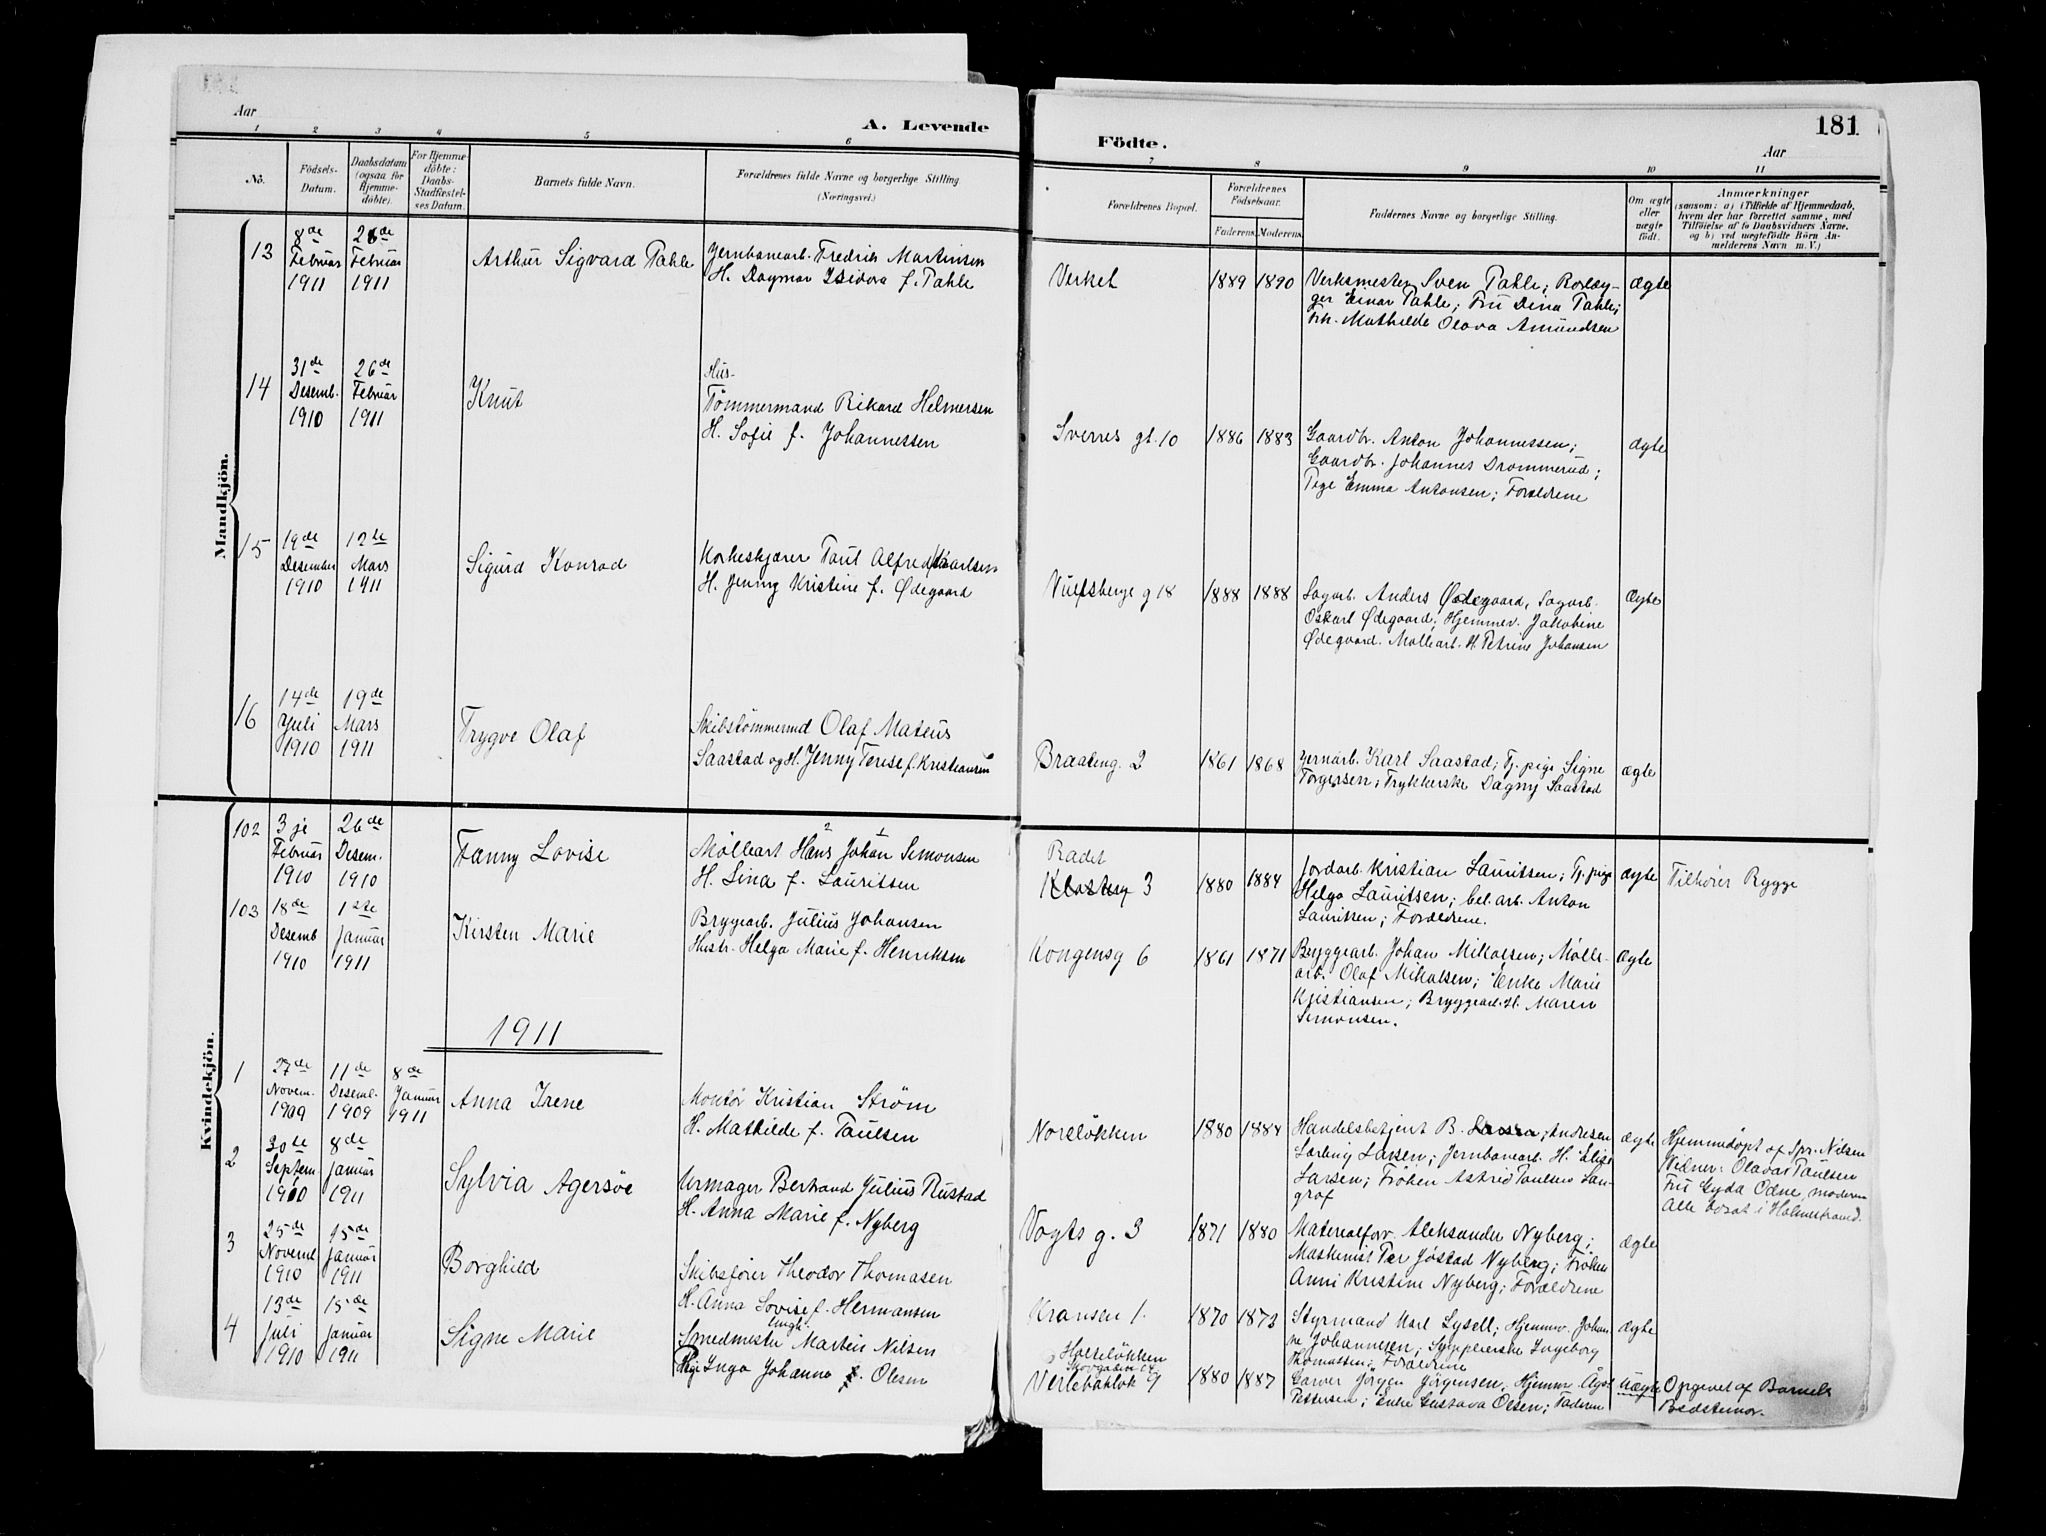 Aar
A. Levende
1 2 3 4 5 6
No.
Födsels-
Datum.
Daabsdatum
(ogsaa for
Hjemme-
döbte).
For Hjemme-
döbte:
Daabs-
Stadfæstel-
ses Datum.
Barnets fulde Navn.
Forældrenes fulde Navne og borgerlige Stilling
(Næringsvei.)
Mandkjön.
13
8de
Februar
1911
26de
Februar
1911
Arthur Sigvard Tahle
Jernbanearb. Fredrik Martinsen
H. Dagmar Isidora f. Tahle
14
31de
Desemb.
1910
26de
Februar
1911
Knut
Hus-
Tömmermand Rikard Helmersen
H. Sofie f. Johannessen
15
19de
Desember
1910
12te
Mars
1911
Sigurd Konrad
Korkeskjærer Paul Alfred Karlsen
H. Jenny Kristine f. Ødegaard
16
14de
Juli
1910
19de
Mars
1911
Trygve Olaf
Skibstömmermd Olaf Mateus
Saastad og H. Jenny Terese f. Kristiansen
Kvindekjön.
102
3je
Februar
1910
26de
Desem.
1910
Fanny Lovise
Mølleart Hans Johan Simonsen
H. Lina f. Lauritsen
103
18de
Desemb
1910
1ste
Januar
1911
Kirsten Marie
Bryggearb. Julius Johansen
Hustr. Helga Marie f. Henriksen
1911
1
27de
Novem.
1909
11de
Desemb.
1909
8de
Januar
1911
Anna Irene
Montör Kristian Ström
H. Mathilde f. Paulsen
2
30te
Septem
1910
8de
Januar
1911
Sylvia Agersøe
Urmager Bertrand Julius Rustad
H. Anna Marie f. Nyberg
3
25de
Novemb
1910
15de
Januar
1911
Borghild
Skibsfører Theodor Thomasen
H. Anna Lovise f. Hermansen
4
13de
Juli
1910
15de
Januar
1911
Signe Marie
Ungk.
Smedmester Martin Nilsen
Pige Inga Johanne f. Olesen
181
Födte.
Aar
7 8 9 10 11
Forældrenes Bopæl.
Forældrenes
Födselsaar.
Faderens. Moderens.
Faddernes Navne og borgerlige Stilling.
Om ægte
eller
uægte
født.
Anmærkninger
(saasom: a) i Tilfælde af Hjemmedaab,
hvem der har forrettet samme, med
Tilföielse af to Daabsvidners Navne,
og b) ved uægtefödte Börn An-
melderens Navn m. V.)
Verket 1889 1890
Verksmester Sven Tahle; Rørlæg-
ger Einar Tahle; Fru Dina Tahle;
Frk. Mathilde Olava Amundsen
ægte
Sverres gt. 10 1886 1883
Gaardbr. Anton Johannessen;
Gaardbr. Johannes Drommerud;
Pige Emma Antonsen; Forældrene
ægte
Vulfsberge g 18 1888 1888
Sagarb. Anders Ødegaard, Sagarb.
Oskarl Ødegaard; Hjemmev. Jakobine
Ødegaard. Møllearb. H. Petrine Johansen
ægte
Braateng. 2 1861 1868
Jernarb. Karl Saastad; Tj. pige Signe
Torgersen; Trykkerske Dagny Saastad
ægte
Radet
Klosterg 3 1880 1884
Jordarb. Kristian Lauritsen; Tj. pige
Helga Lauritsen; bel. arb. Anton
Lauritsen; Forældrene.
ægte
Tilhører Rygge
Kongensg 6 1861 1871
Bryggearb. Johan Mikalsen; Mølle-
arb. Olaf Mikalsen; Enke Marie
Kristiansen; Bryggearb. H. Maren
Simonsen.
ægte
Noreløkken 1880 1884
Handelsbetjent B. Andresen
Lærling Larsen; Jernbanearb. H. Elise
Larsen; Frøken Astrid Paulsen Lan-
graf
ægte
Hjemmedøpt af Spr. Nilsen
Vidner: Olava Paulsen
Fru Gyda Odne, moderen
Alle bosat i Holmestrand.
Vogts g. 3 1871 1880
Materialforv. Aleksander Nyberg;
Maskinist Per Jøstad Nyberg; Frøken
Anni Kristine Nyberg; Forældrene
ægte
Kransen 1. 1870 1872
Styrmand Karl Lysell; Hjemmev. Johan
ne Johannesen; Sypleierske Ingeborg
Thomassen; Forældrene
ægte
Holteløkken
Skovgaden 14
Verlebakløk 9 1880 1887
Garver Jørgen Jörgensen, Hjemmv. Ågot
Pettersen; Enke Gustava Olsen; Faderen
Uægte
Opgivet af Barnets
Bedstemor.